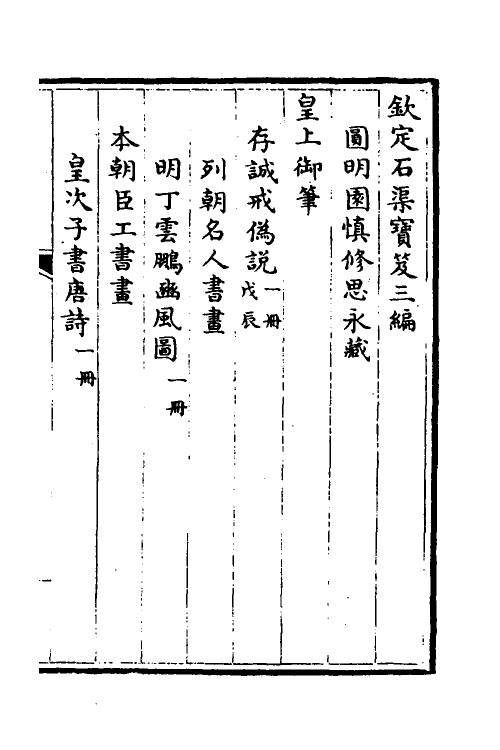 欽定石渠寶笈三編
圓明園慎修思永藏
皇上御筆
存誠戒偽說一冊戊辰
列朝名人書畫
明丁雲鵬豳風圖一冊
本朝臣工書畫
皇次子書唐詩一冊